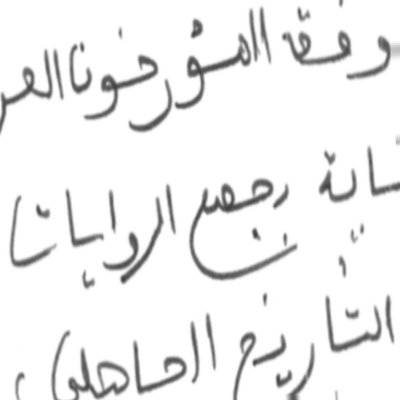 وفقه المؤرخون العر
تابة رجمع الروايات
التأريخ الجاهلي